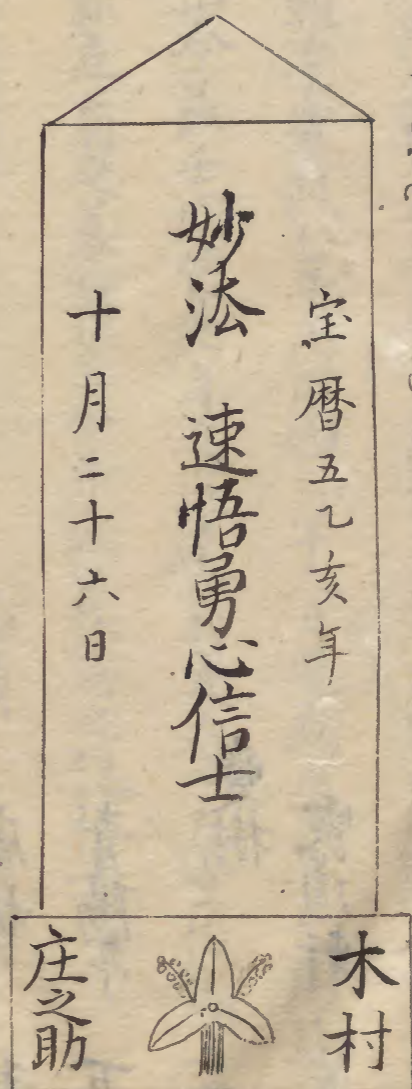 宝暦五乙亥年
妙法 速悟勇心信士
十月二十六日
木村
庄之助